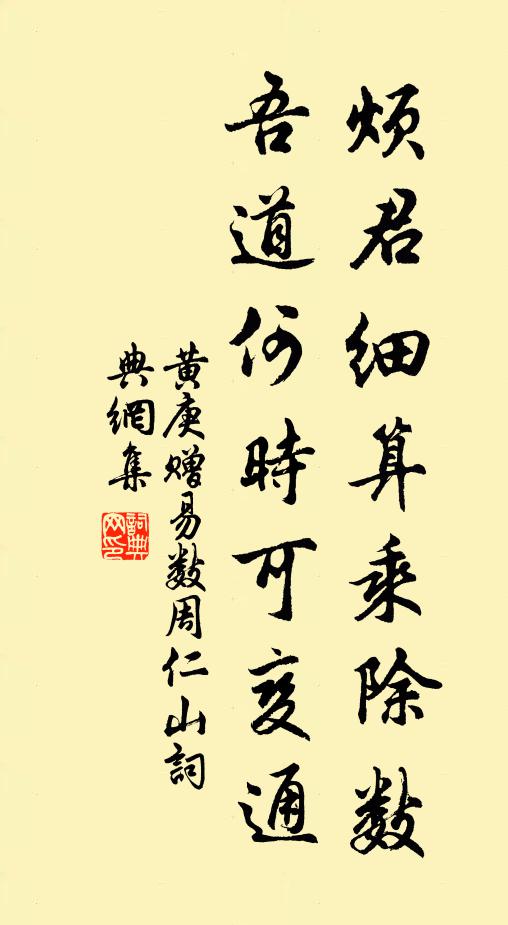 烦君細算乘除數
吾道何時可变通
黄庚赠易数周仁山詞
典網集
詞典
网印